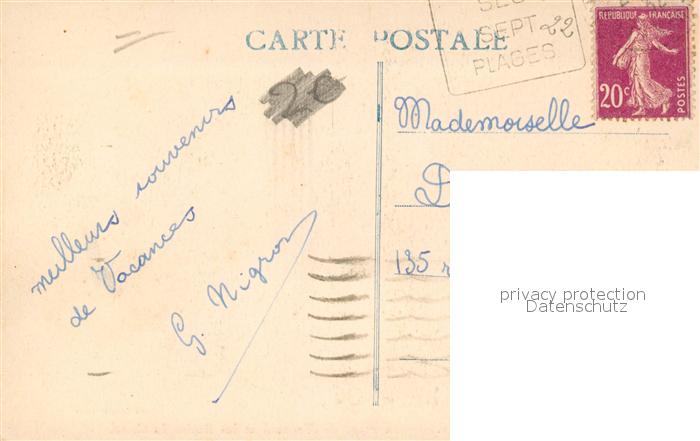 SEPT
PLAGES
22
CARTE POSTALE
REPUBLIQUE FRANÇAISE
20c
POSTES
20
Mademoiselle
D
135 r
meilleurs souvenirs
de Vacances
G. Nigron
privacy protection
Datenschutz